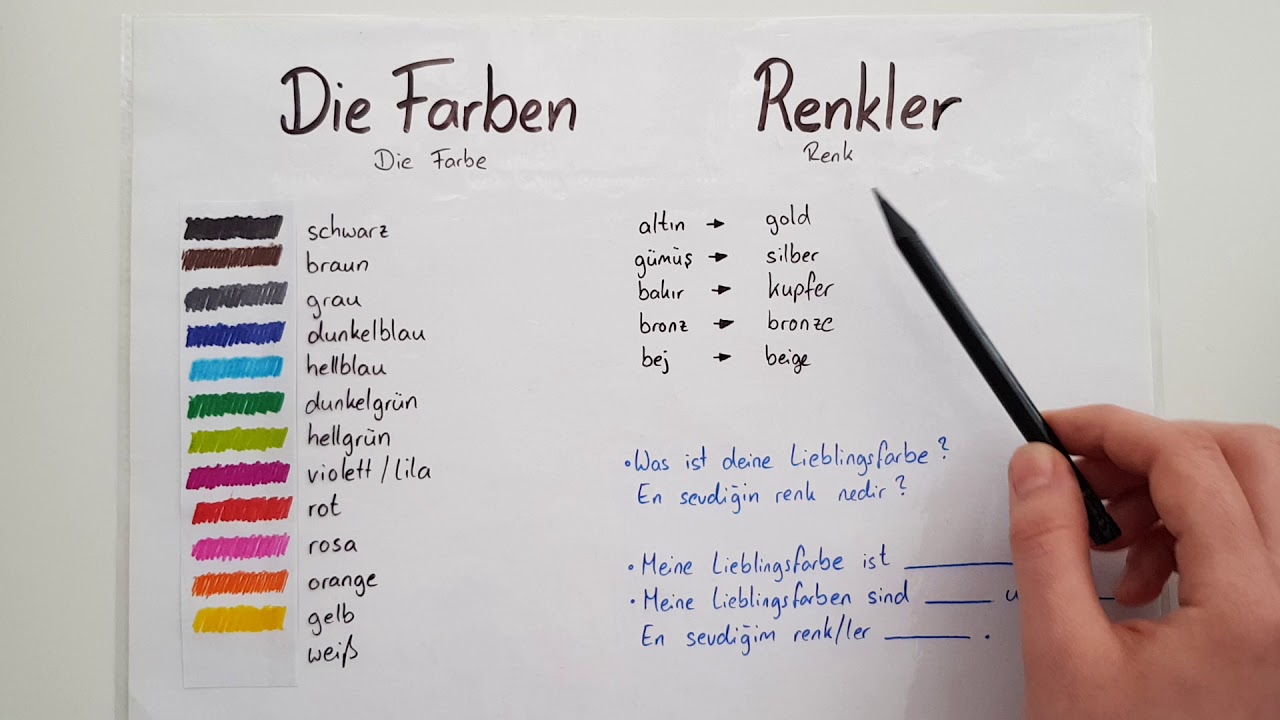 Die Farben
Die Farbe
schwarz
braun
grau
dunkelblau
hellblau
dunkelgrün
hellgrün
violett / lila
rot
rosa
orange
gelb
weiß
Renkler
Renk
altın → gold
gümüş → silber
bakır → kupfer
bronz → bronze
bej → beige
• Was ist deine Lieblingsfarbe?
En sevdiğin renk nedir?
• Meine Lieblingsfarbe ist ______
• Meine Lieblingsfarben sind _____
En sevdiğim renk/ler ______.